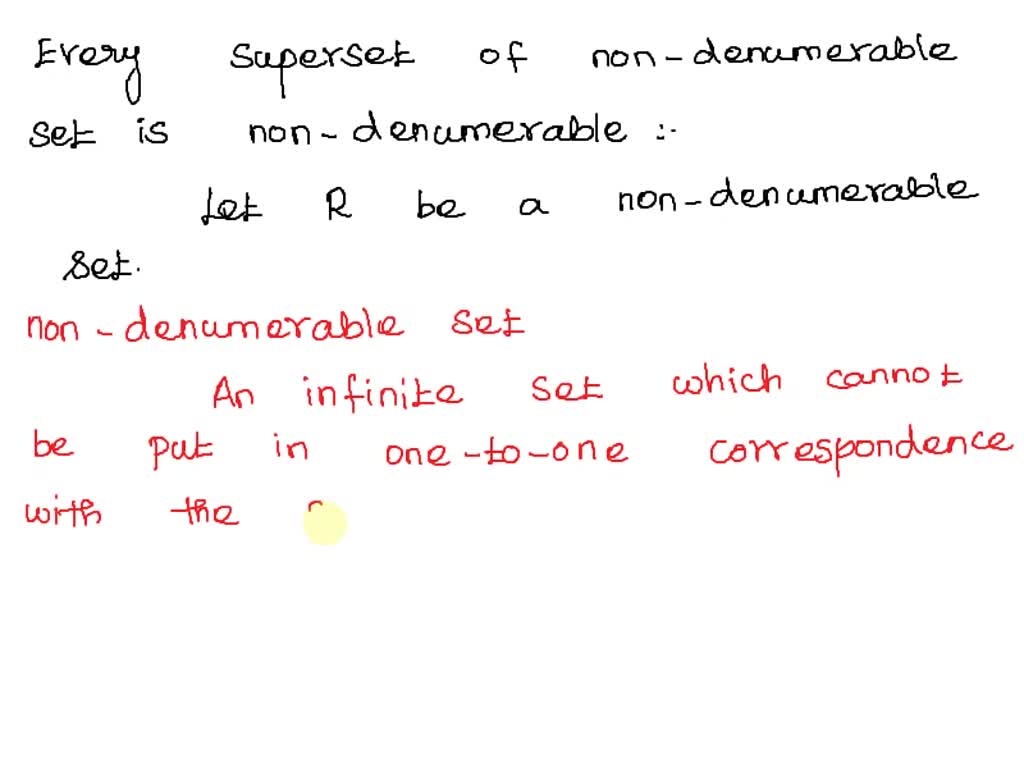 Every superset of non-denumerable
set is non-denumerable :-
Let R be a non-denumerable
set.
non-denumerable set
An infinite set which cannot
be put in one-to-one correspondence
with the